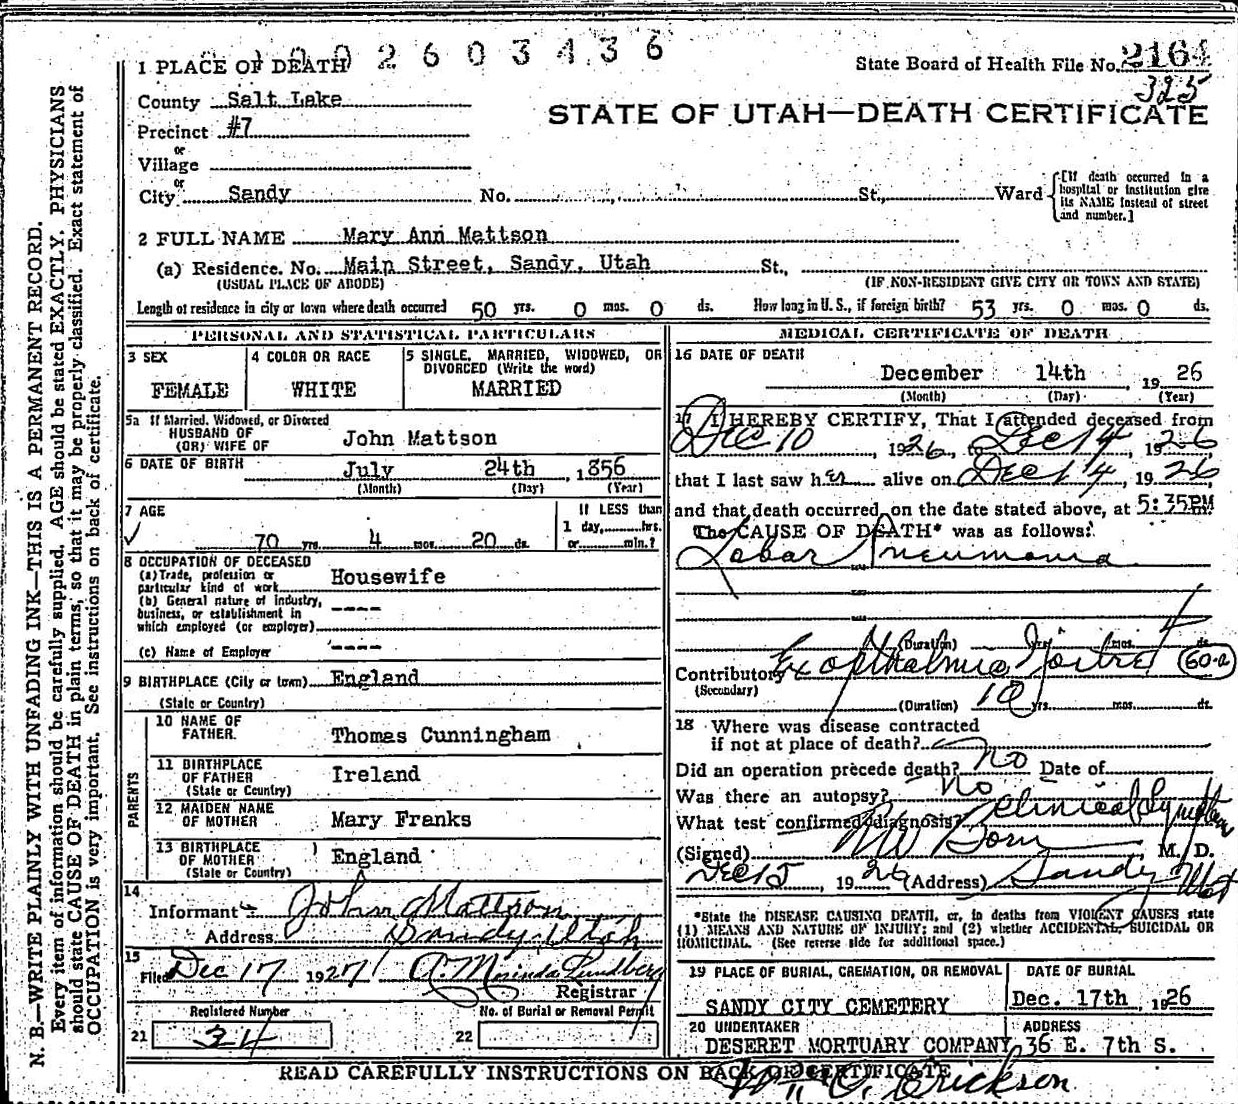 1002603436
1 PLACE OF DEATH
State Board of Health File No. 2164
325
County Salt Lake
STATE OF UTAH—DEATH CERTIFICATE
Precinct #7
or
Village
or
City Sandy No. St., Ward
[If death occurred in a hospital or institution give its NAME instead of street and number.]
2 FULL NAME Mary Ann Mattson
(a) Residence. No. Main Street, Sandy, Utah St.,
(USUAL PLACE OF ABODE) (IF NON-RESIDENT GIVE CITY OR TOWN AND STATE)
Length of residence in city or town where death occurred 50 yrs. 0 mos. 0 ds. How long in U. S., if foreign birth? 53 yrs. 0 mos. 0 ds.
PERSONAL AND STATISTICAL PARTICULARS
3 SEX
FEMALE
4 COLOR OR RACE
WHITE
5 SINGLE, MARRIED, WIDOWED, OR
DIVORCED (Write the word)
MARRIED
5a If Married, Widowed, or Divorced
HUSBAND OF
(OR) WIFE OF John Mattson
6 DATE OF BIRTH July 24th, 1856
(Month) (Day) (Year)
7 AGE
70 yrs. 4 mos. 20 ds.
If LESS than
1 day, hrs.
or min.?
8 OCCUPATION OF DECEASED
(a) Trade, profession or
particular kind of work Housewife
(b) General nature of industry,
business, or establishment in
which employed (or employer) ----
(c) Name of Employer ----
9 BIRTHPLACE (City or town) England
(State or Country)
PARENTS
10 NAME OF
FATHER. Thomas Cunningham
11 BIRTHPLACE
OF FATHER Ireland
(State or Country)
12 MAIDEN NAME
OF MOTHER Mary Franks
13 BIRTHPLACE
OF MOTHER England
(State or Country)
14
Informant John Mattson
Address Sandy Utah
15
Filed Dec 17 1927 A. Morinda Lundberg
Registrar
Registered Number
21 34
No. of Burial or Removal Permit
22
MEDICAL CERTIFICATE OF DEATH
16 DATE OF DEATH
December 14th, 1926
(Month) (Day) (Year)
17 I HEREBY CERTIFY, That I attended deceased from
Dec 10, 1926, to Dec 14, 1926
that I last saw her alive on Dec 14, 1926,
and that death occurred, on the date stated above, at 5:35PM
The CAUSE OF DEATH* was as follows:
Lobar Pneumonia
(Duration) yrs. mos. 4 ds.
Contributory Exopthalmic Goitre 60-a
(Secondary)
(Duration) 10 yrs. mos. ds.
18 Where was disease contracted
if not at place of death?
Did an operation precede death? No Date of
Was there an autopsy? No
What test confirmed diagnosis? Clinical Symptoms
(Signed) Born M. D.
Dec 15, 1926 (Address) Sandy Utah
*State the DISEASE CAUSING DEATH, or, in deaths from VIOLENT CAUSES state
(1) MEANS AND NATURE OF INJURY; and (2) whether ACCIDENTAL, SUICIDAL OR
HOMICIDAL. (See reverse side for additional space.)
19 PLACE OF BURIAL, CREMATION, OR REMOVAL
SANDY CITY CEMETERY
DATE OF BURIAL
Dec. 17th, 1926
20 UNDERTAKER
DESERET MORTUARY COMPANY
ADDRESS
36 E. 7th S.
READ CAREFULLY INSTRUCTIONS ON BACK OF CERTIFICATE
Erickson
N. B.—WRITE PLAINLY WITH UNFADING INK—THIS IS A PERMANENT RECORD.
Every item of information should be carefully supplied. AGE should be stated EXACTLY. PHYSICIANS
should state CAUSE OF DEATH in plain terms, so that it may be properly classified. Exact statement of
OCCUPATION is very important. See instructions on back of certificate.